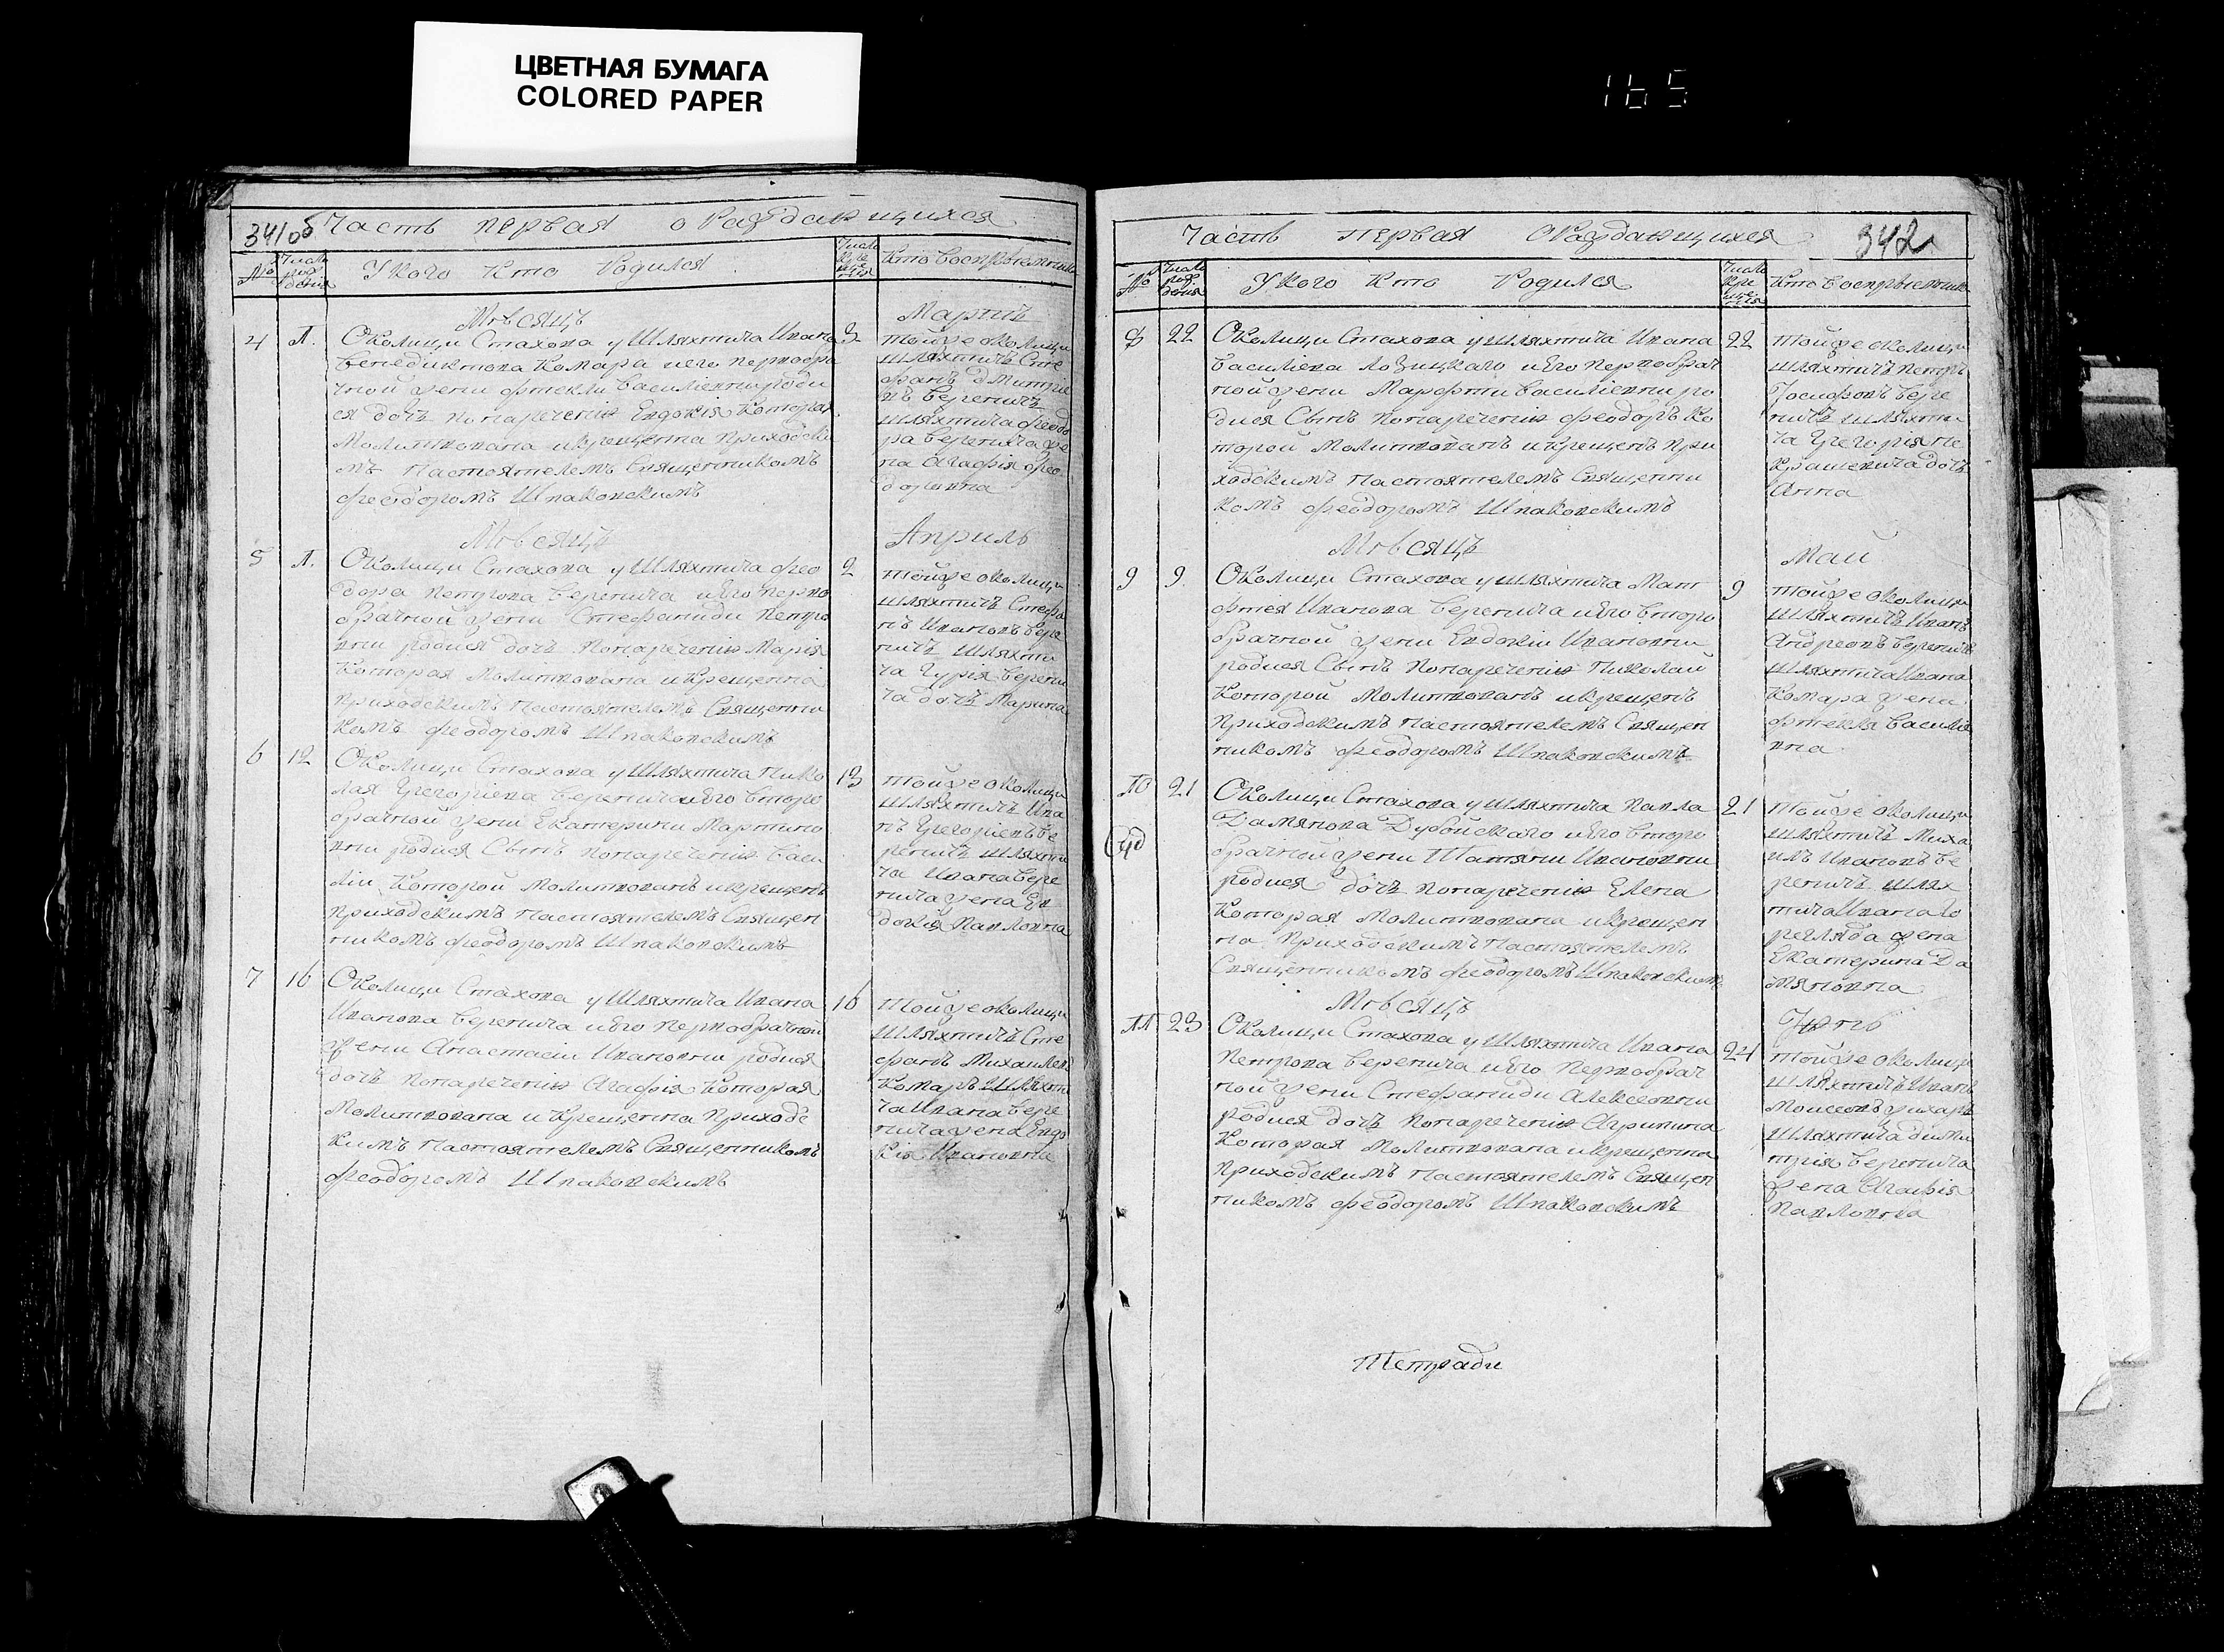 ЦВЕТНАЯ БУМАГА
COLORED PAPER
165
341об Часть первая о Раждающихся
№ Число рождения У кого кто Родился Число крещения Кто Восприемники
Мѣсяцъ Мартъ
4 1. Околицы Стахова у Шляхтича Ивана 3
Венедиктова Комара и его первобра
чной жены Фтекли Василіевны роди
ся дочь понареченію Евдокія которая
Молитвована и крещенна Приходски
мъ Настоятелемъ Священникомъ
Феодоромъ Шпаковскимъ
тойже околицы
шляхтичъ Сте
фанъ Дмитрие
въ Вереничъ
шляхтича Феодо
ра Веренича же
на Агафія Фео
доровна
Мѣсяцъ Апрель
5 1. Околицы Стахова у Шляхтича Фео 2
дора Петрова Веренича и Его перво
брачной жены Стефаниды Петро
вны родися дочь понареченію Марія
Которая Молитвована и Крещенна
Приходскимъ Настоятелемъ Священни
комъ Феодоромъ Шпаковскимъ
тойже околицы
шляхтичъ Стефа
нъ Ивановъ Вере
ничъ шляхти
ча Гурія Верени
ча дочь Марина
6 12 Околицы Стахова у Шляхтича Нико 13
лая Григоріева Веренича и Его второ
брачной жены Екатерины Мартино
вны родися Сынъ понареченію Васи
лій Которой молитвованъ и крещенъ
Приходскимъ Настоятелемъ Священ
никомъ Феодоромъ Шпаковскимъ
тойже околицы
шляхтичъ Ива
нъ Григоріевъ Ве
реничъ шляхти
ча Ивана Вере
нича жена Ев
докія Павловна
7 16 Околицы Стахова у Шляхтича Ивана 16
Иванова Веренича и Его первобрачной
жены Анастасіи Ивановны родися
дочь понареченію Агафія Которая
Молитвована и Крещенна Приходс
кимъ Настоятелемъ Священникомъ
Феодоромъ Шпаковскимъ
тойже околицы
шляхтичъ Сте
фанъ Михаилев
Комаръ шляхти
ча Ивана Вере
нича жена Евдо
кія Ивановна
Часть первая О Раждающихся 342
№ Число рождения У кого кто Родился Число крещения Кто Восприемники
8 22 Околицы Стахова у Шляхтича Ивана 22
Василіева Лозицкаго и Его первобрач
ной жены Марфты Василіевны ро
дися Сынъ понареченію Феодоръ Ко
торой Молитвованъ и крещенъ При
ходскимъ Настоятелемъ Священни
комъ Феодоромъ Шпаковскимъ
тойже околицы
шляхтичъ Петръ
Іосифовъ Вере
ничъ шляхти
ча Григорія Не
крашевича дочь
Анна
Мѣсяцъ Май
9 9 Околицы Стахова у Шляхтича Мат 9
фтея Иванова Веренича и Его второ
брачной жены Евдокіи Ивановны
родися Сынъ понареченію Николай
Которой Молитвованъ и крещенъ
Приходскимъ Настоятелемъ Священ
никомъ Феодоромъ Шпаковскимъ
тойже околицы
шляхтичъ Иванъ
Андреовъ Вереничъ
шляхтича Ивана
Комара жена
Фтекла Василіе
вна
10 21 Околицы Стахова у Шляхтича Павла 21
Дамянова Дубойскаго и Его второ
брачной жены Татяны Ивановны
родися дочь понареченію Елена
Которая Молитвована и крещен
на Приходскимъ Настоятелемъ
Священникомъ Феодоромъ Шпаковскимъ
тойже околицы
шляхтичъ Миха
илъ Ивановъ Ве
реничъ шлях
тича Ивана Го
регляда жена
Екатерина Да
мяновна
Мѣсяцъ Іюнь
11 23 Околицы Стахова у Шляхтича Ивана 24
Петрова Веренича и Его Первобрач
ной жены Стефаниды Алексеовны
родися дочь Понареченію Агрипина
Которая Молитвована и крещенна
Приходскимъ Настоятелемъ Священ
никомъ Феодоромъ Шпаковскимъ
тойже околицы
шляхтичъ Иванъ
Моисеовъ
шляхтича Дими
трія Веренича
жена Агафія
Павловна
Тетради